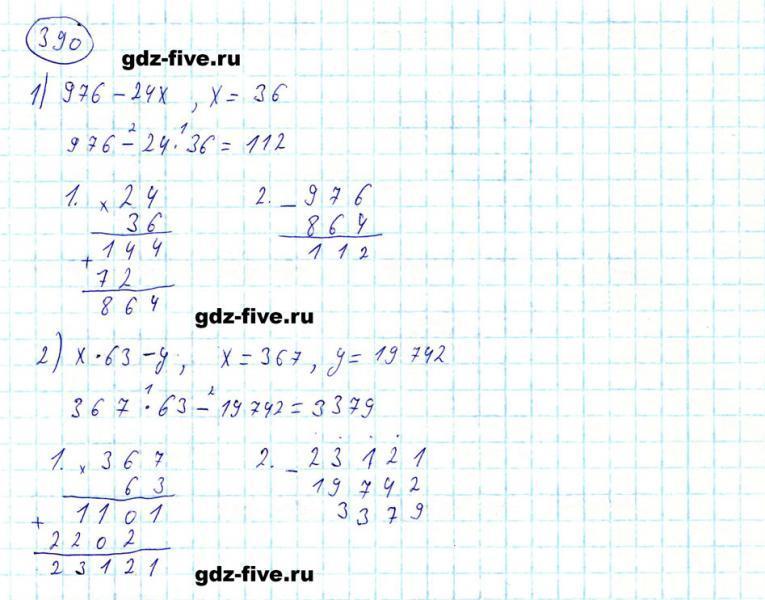 390
gdz-five.ru
1) 976 - 24x, x = 36
976 -² 24 ·¹ 36 = 112
1. × 24
36
+ 144
72
864
2. - 976
864
112
gdz-five.ru
2) x · 63 - y, x = 367, y = 19 742
367 ·¹ 63 -² 19742 = 3379
1. × 367
63
+ 1101
2202
23121
2. - 23121
19742
3379
gdz-five.ru